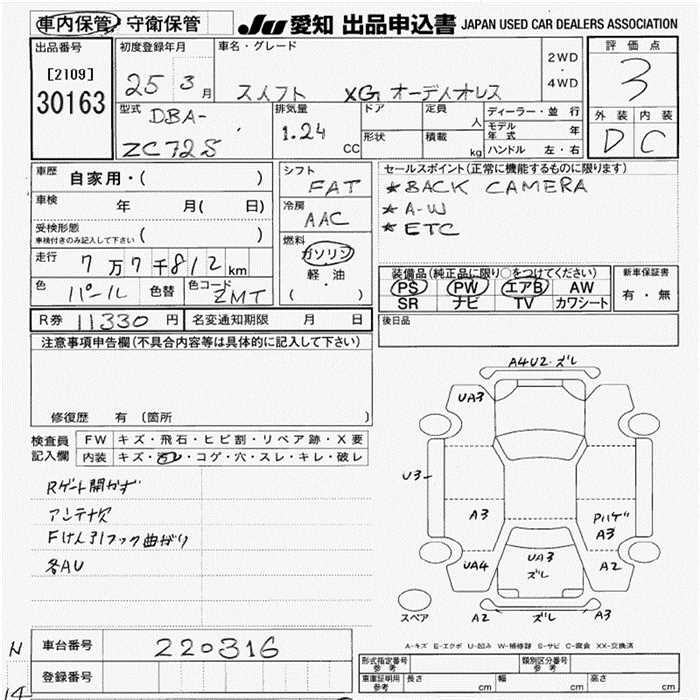 車内保管 / 守衛保管
JU 愛知 出品申込書 JAPAN USED CAR DEALERS ASSOCIATION
出品番号
[2109]
30163
初度登録年月
25 3 月
車名・グレード
スイフト XG オーディオレス
2WD
・
4WD
評価点
3
外装 内装
D C
型式
DBA-
ZC72S
排気量
1.24 CC
ドア
形状
定員 人
積載 kg
ディーラー・並行
モデル年式 年
ハンドル 左・右
車歴 自家用・( )
車検 年 月( 日)
受検形態
車検付きのみ記入して下さい ( )
走行 7万7千812 km
色 パール 色替 色コード ZMT
シフト
FAT
冷房
AAC
燃料
ガソリン
軽・油
( ・ )
セールスポイント(正常に機能するものに限ります)
*BACK CAMERA
*A-W
*ETC
装備品(純正品に限り○をつけてください)
PS PW エアB AW
SR ナビ TV カワシート
新車保証書
有・無
R券 11330 円 名変通知期限 月 日
後日品
注意事項申告欄(不具合内容等は具体的に記入して下さい)
修復歴 有 (箇所 )
検査員記入欄
FW キズ・飛石・ヒビ割・リペア跡・X要
内装 キズ・汚レ・コゲ・穴・スレ・キレ・破レ
Rゲート開かず
アンテナ欠
Fけん引フック曲がり
各AU
A4U2・ズレ
UA3
U3
A3
Pハゲ
A3
UA4
UA3
ズレ
A2
スペア
A2 ズレ A3
A-キズ E-エクボ U-凹み W-補修跡 S-サビ C-腐食 XX-交換済
N
車台番号 220316
登録番号
14
形式指定番号
参考
類別区分番号
参考
車庫証明用
参考
長さ cm 幅 cm 高さ cm